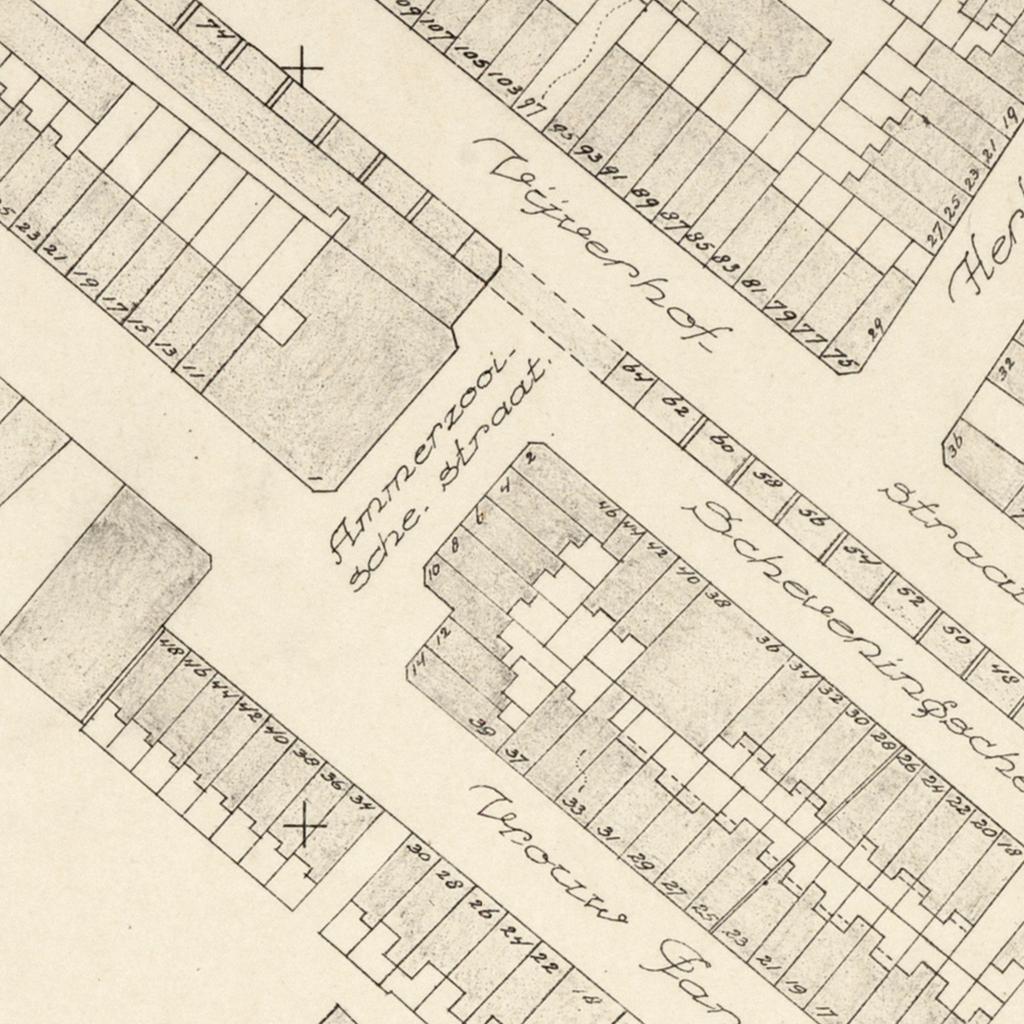 74
109 107 105 103 97 95 93 91 89 87 85 83 81 79 77 75
29
27 25 23 21 19
Vijverhof
23 21 19 17 15 13 11
1
Ammerzooi-
sche. straat.
64 62 60 58 56 54 52 50 48
32
36
Scheveningsche
2
4
6
8
10
12
14
46 44 42 40 38 36 34 32 30 28 26 24 22 20 18
39 37 33 31 29 27 25 23 21 19 17
48 46 44 42 40 38 36 34
30 28 26 24 22 18
Vrouw